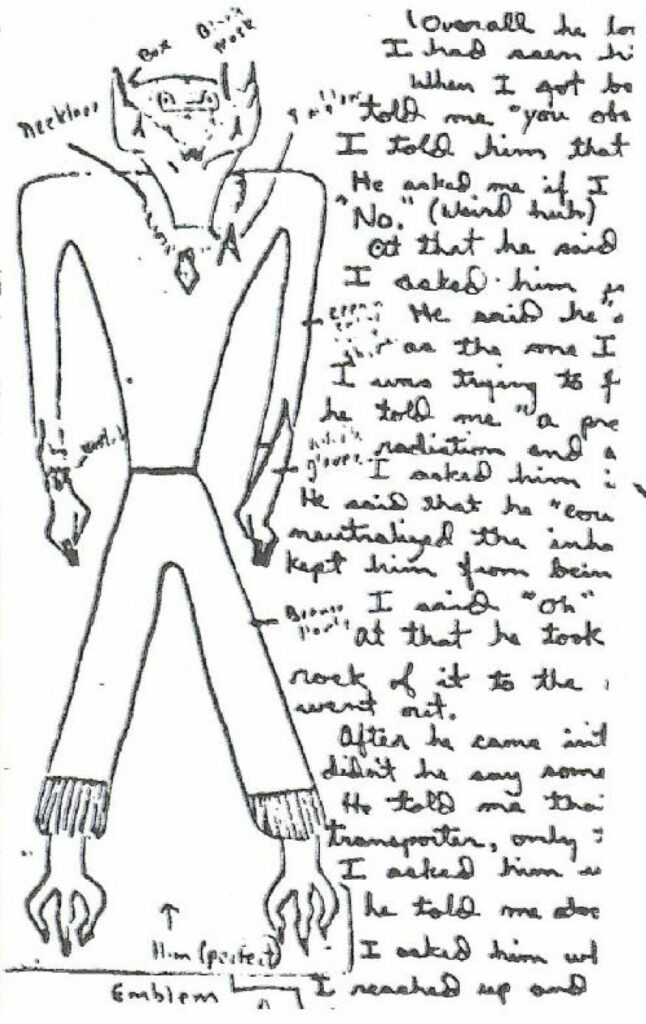 Box
Black
mark
Necklace
Emblem
(Overall he lo
I had seen hi
When I got be
told me "you obs
I told him that
He asked me if I
"No." (Weird huh)
At that he said
I asked him
He said he
as the one I
I was trying to f
he told me "a pre
radiation and a
white
gloves
I asked him
He said that he "cou
neutralized the inha
kept him from bein
I said "Oh"
Brown
pants
at that he took
rock of it to the
went out.
After he came int
didn't he say some
He told me tha
transporter, only
I asked him w
he told me abo
Him (perfect)
I asked him wh
Emblem
I reached up and